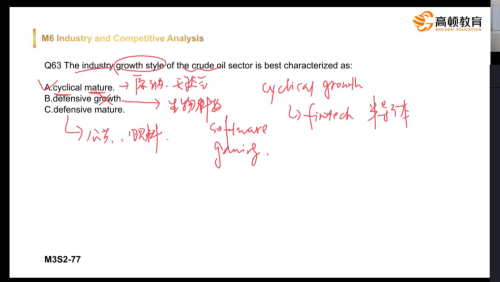 M6 Industry and Competitive Analysis
高顿教育
GOLDEN EDUCATION
Q63 The industry growth style of the crude oil sector is best characterized as:
A.cyclical mature. → 原油、天然气
B.defensive growth. → 生物科技
C.defensive mature.
cyclical growth
↳ fintech 半导体
software
gaming.
M3S2-77